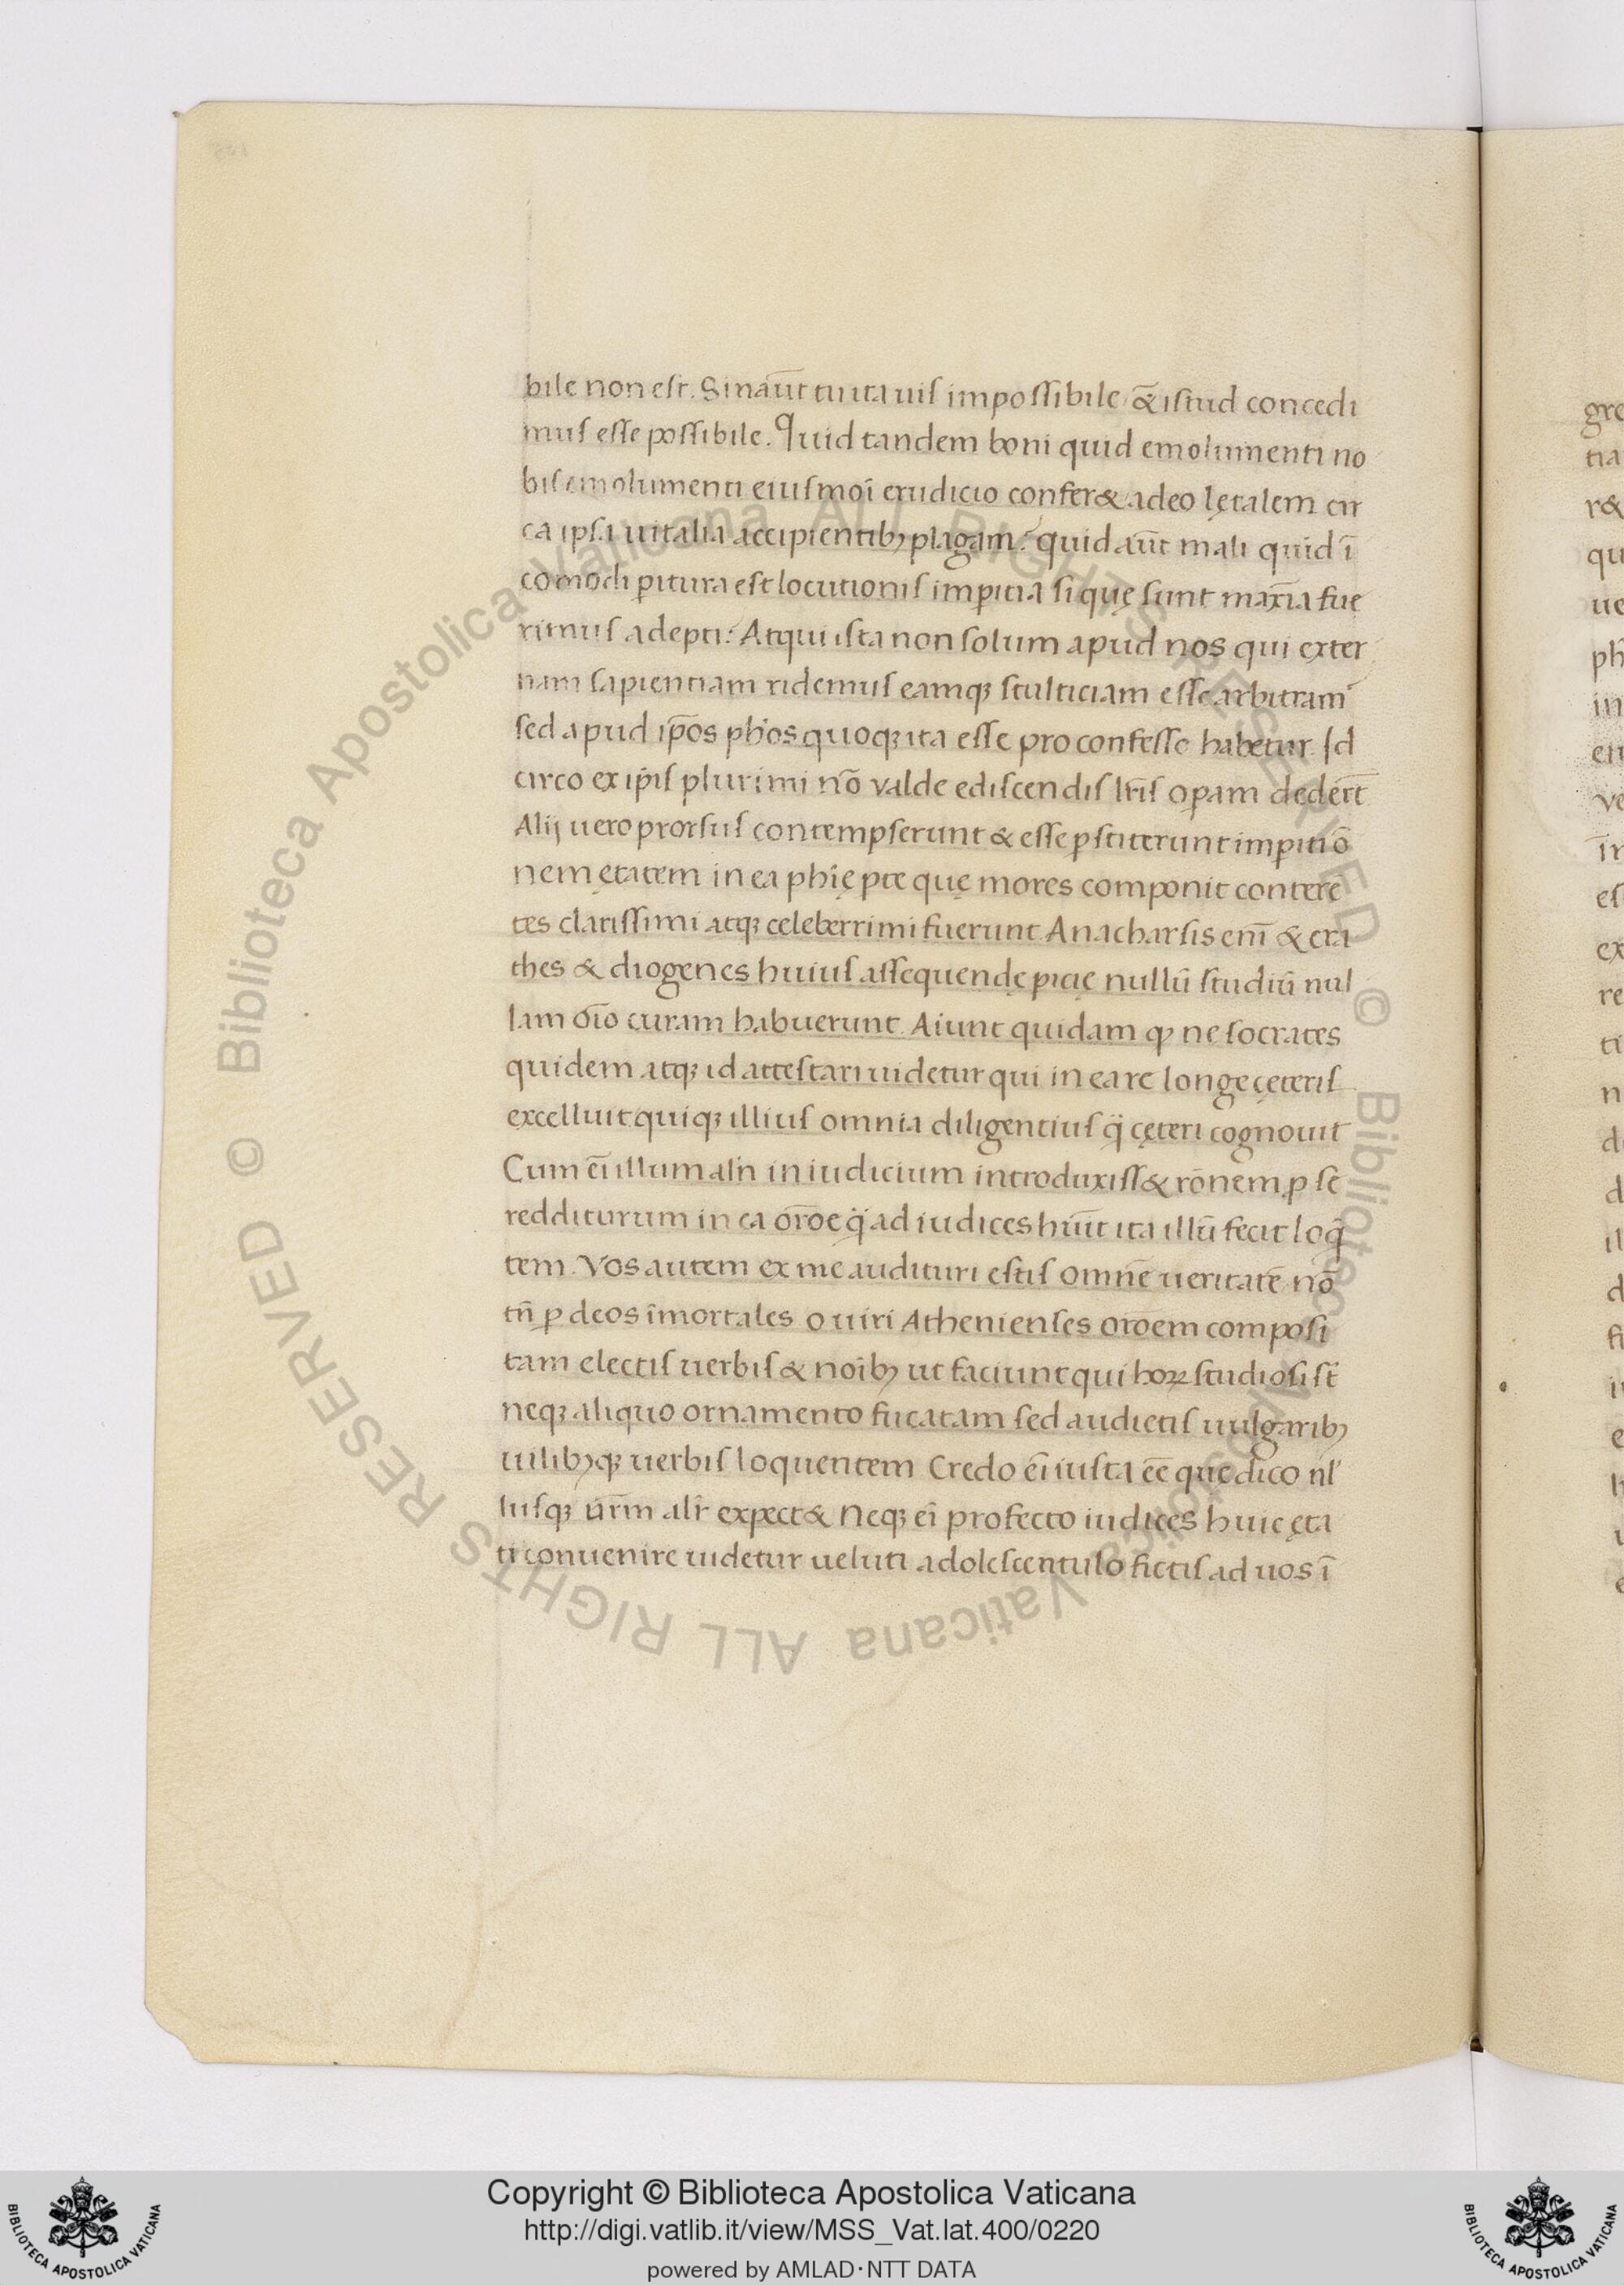 bile non est. Sinaūt tu ita uis impossibile &̄ istud concedi
mus esse possibile. Quid tandem boni quid emolumenti no
bis emolumenti eiusmoi̅ erudicio confer& adeo lętalem cir
ca ipsa uitalia accipientibꝫ plagam? quid aūt mali quid ī
comodi ꝑitura est locutionis imꝑitia si quę sunt maxīa fue
rimus adepti? Atqui ista non solum apud nos qui exter
nam sapientiam ridemus eamqꝫ stulticiam esse arbitram̄
sed apud ip̄os ph̄os quoqꝫ ita esse pro confesso habetur. Id
circo ex ip̄is plurimi nō valde ediscendis lr̄is oꝑam dedert̄
Alij uero prorsus contempserunt & esse ꝑstiterunt imꝑiti ō
nem ętatem in ea ph̄ię pte quę mores componit contere
tes clarissimi atqꝫ celeberrimi fuerunt. Anacharsis enī & cra
thes & diogenes huius assequendę picię nullū studiū nul
lam oīo curam habuerunt. Aiunt quidam ꝙ ne socrates
quidem atqꝫ id attestari uidetur qui in ea re longe çeteris
excelluit quiqꝫ illius omnia diligentius q̄ çęteri cognouit
Cum eī illum alr̄ in iudicium introduxiss& rōnem ꝑ se
redditurum in ea orōe q̄ ad iudices hūit ita illū fecit loq̄
tem. Vos autem ex me audituri estis omnē ueritatē nō
tn̄ ꝑ deos īmortales o uiri Athenienses orōem composi
tam electis uerbis & noībꝫ ut faciunt qui hoꝝ studiosi st̄
neqꝫ aliquo ornamento fucatam sed audietis uulgaribꝫ
uilibꝫqꝫ uerbis loquentem Credo eī iusta eē que dico nl̄
lusqꝫ ur̄m alr̄ expect& Neqꝫ eī profecto iudices huic ęta
ti conuenire uidetur ueluti adolescentulo fictis ad uos ī
gre
tia
r&
qu
ue
in
en
ve
es
ex
re
ti
© Biblioteca Apostolica Vaticana ALL RIGHTS RESERVED © Biblioteca Apostolica Vaticana ALL RIGHTS RESERVED
Copyright © Biblioteca Apostolica Vaticana
http://digi.vatlib.it/view/MSS_Vat.lat.400/0220
powered by AMLAD·NTT DATA
BIBLIOTECA APOSTOLICA VATICANA
BIBLIOTECA APOSTOLICA VATICANA